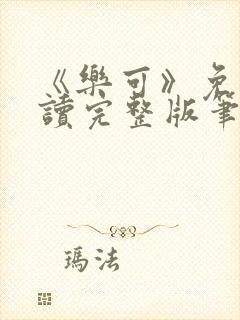 《樂可》免
讀完整版筆
瑪法